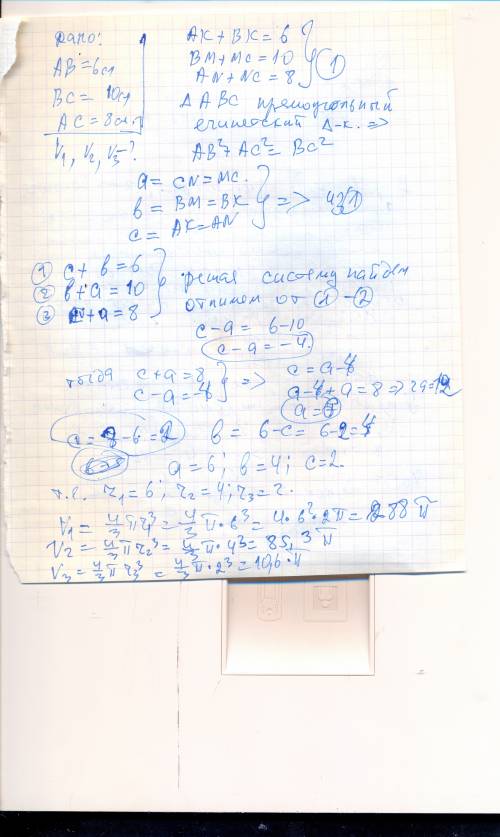 Дано:
AB = 6см
BC = 10см
AC = 8см
V₁, V₂, V₃ - ?
AK + BK = 6
BM + MC = 10
AN + NC = 8
①
ΔABC прямоугольный
египетский Δ-к. =>
AB² + AC² = BC²
a = CN = MC.
b = BM = BK
c = AK = AN
=> из ①
① c + b = 6
② b + a = 10
③ c + a = 8
решая систему найдем
от ① - ②
c - a = 6 - 10
c - a = -4.
тогда c + a = 8
c - a = -4
=> c = a - 4
a - 4 + a = 8 => 2a = 12
a = 6
c = 8 - 6 = 2 b = 6 - c = 6 - 2 = 4
a = 6; b = 4; c = 2.
т.е. r₁ = 6; r₂ = 4; r₃ = 2.
V₁ = 4/3 πr₁³ = 4/3 π · 6³ = 4 · 6² · 2π = 288 π
V₂ = 4/3 πr₂³ = 4/3 π · 4³ = 85,3 π
V₃ = 4/3 π r₃³ = 4/3 π · 2³ = 10,6 · π